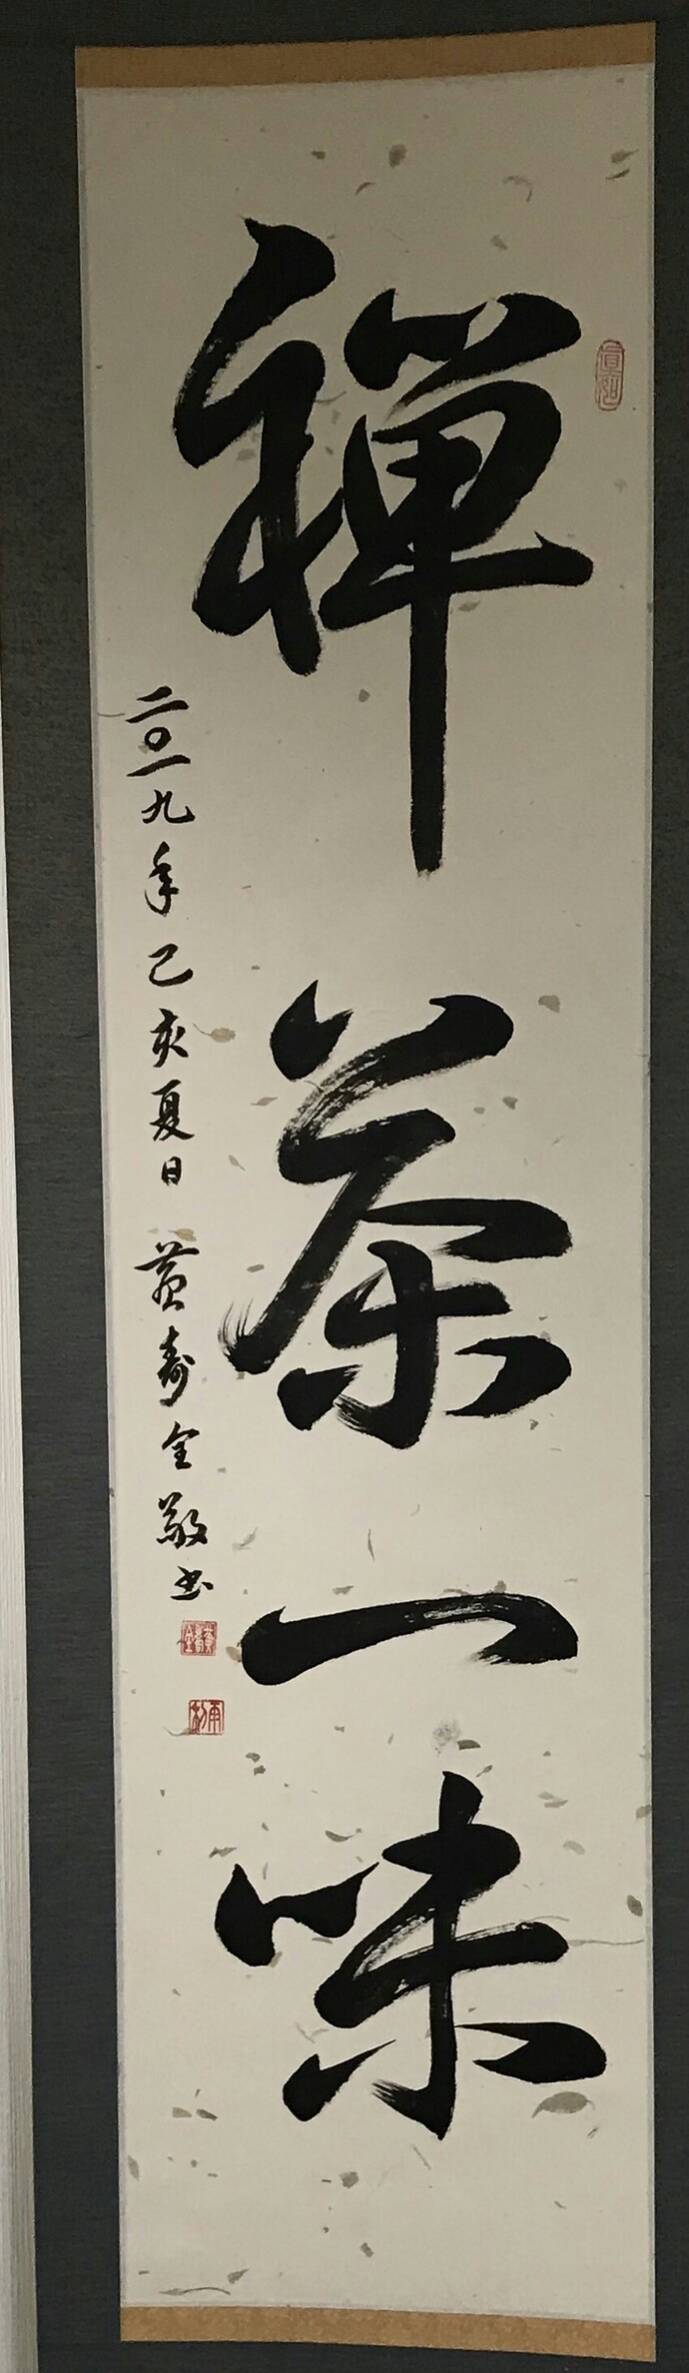 禪茶一味
二〇一九年己亥夏日 黃壽全敬書